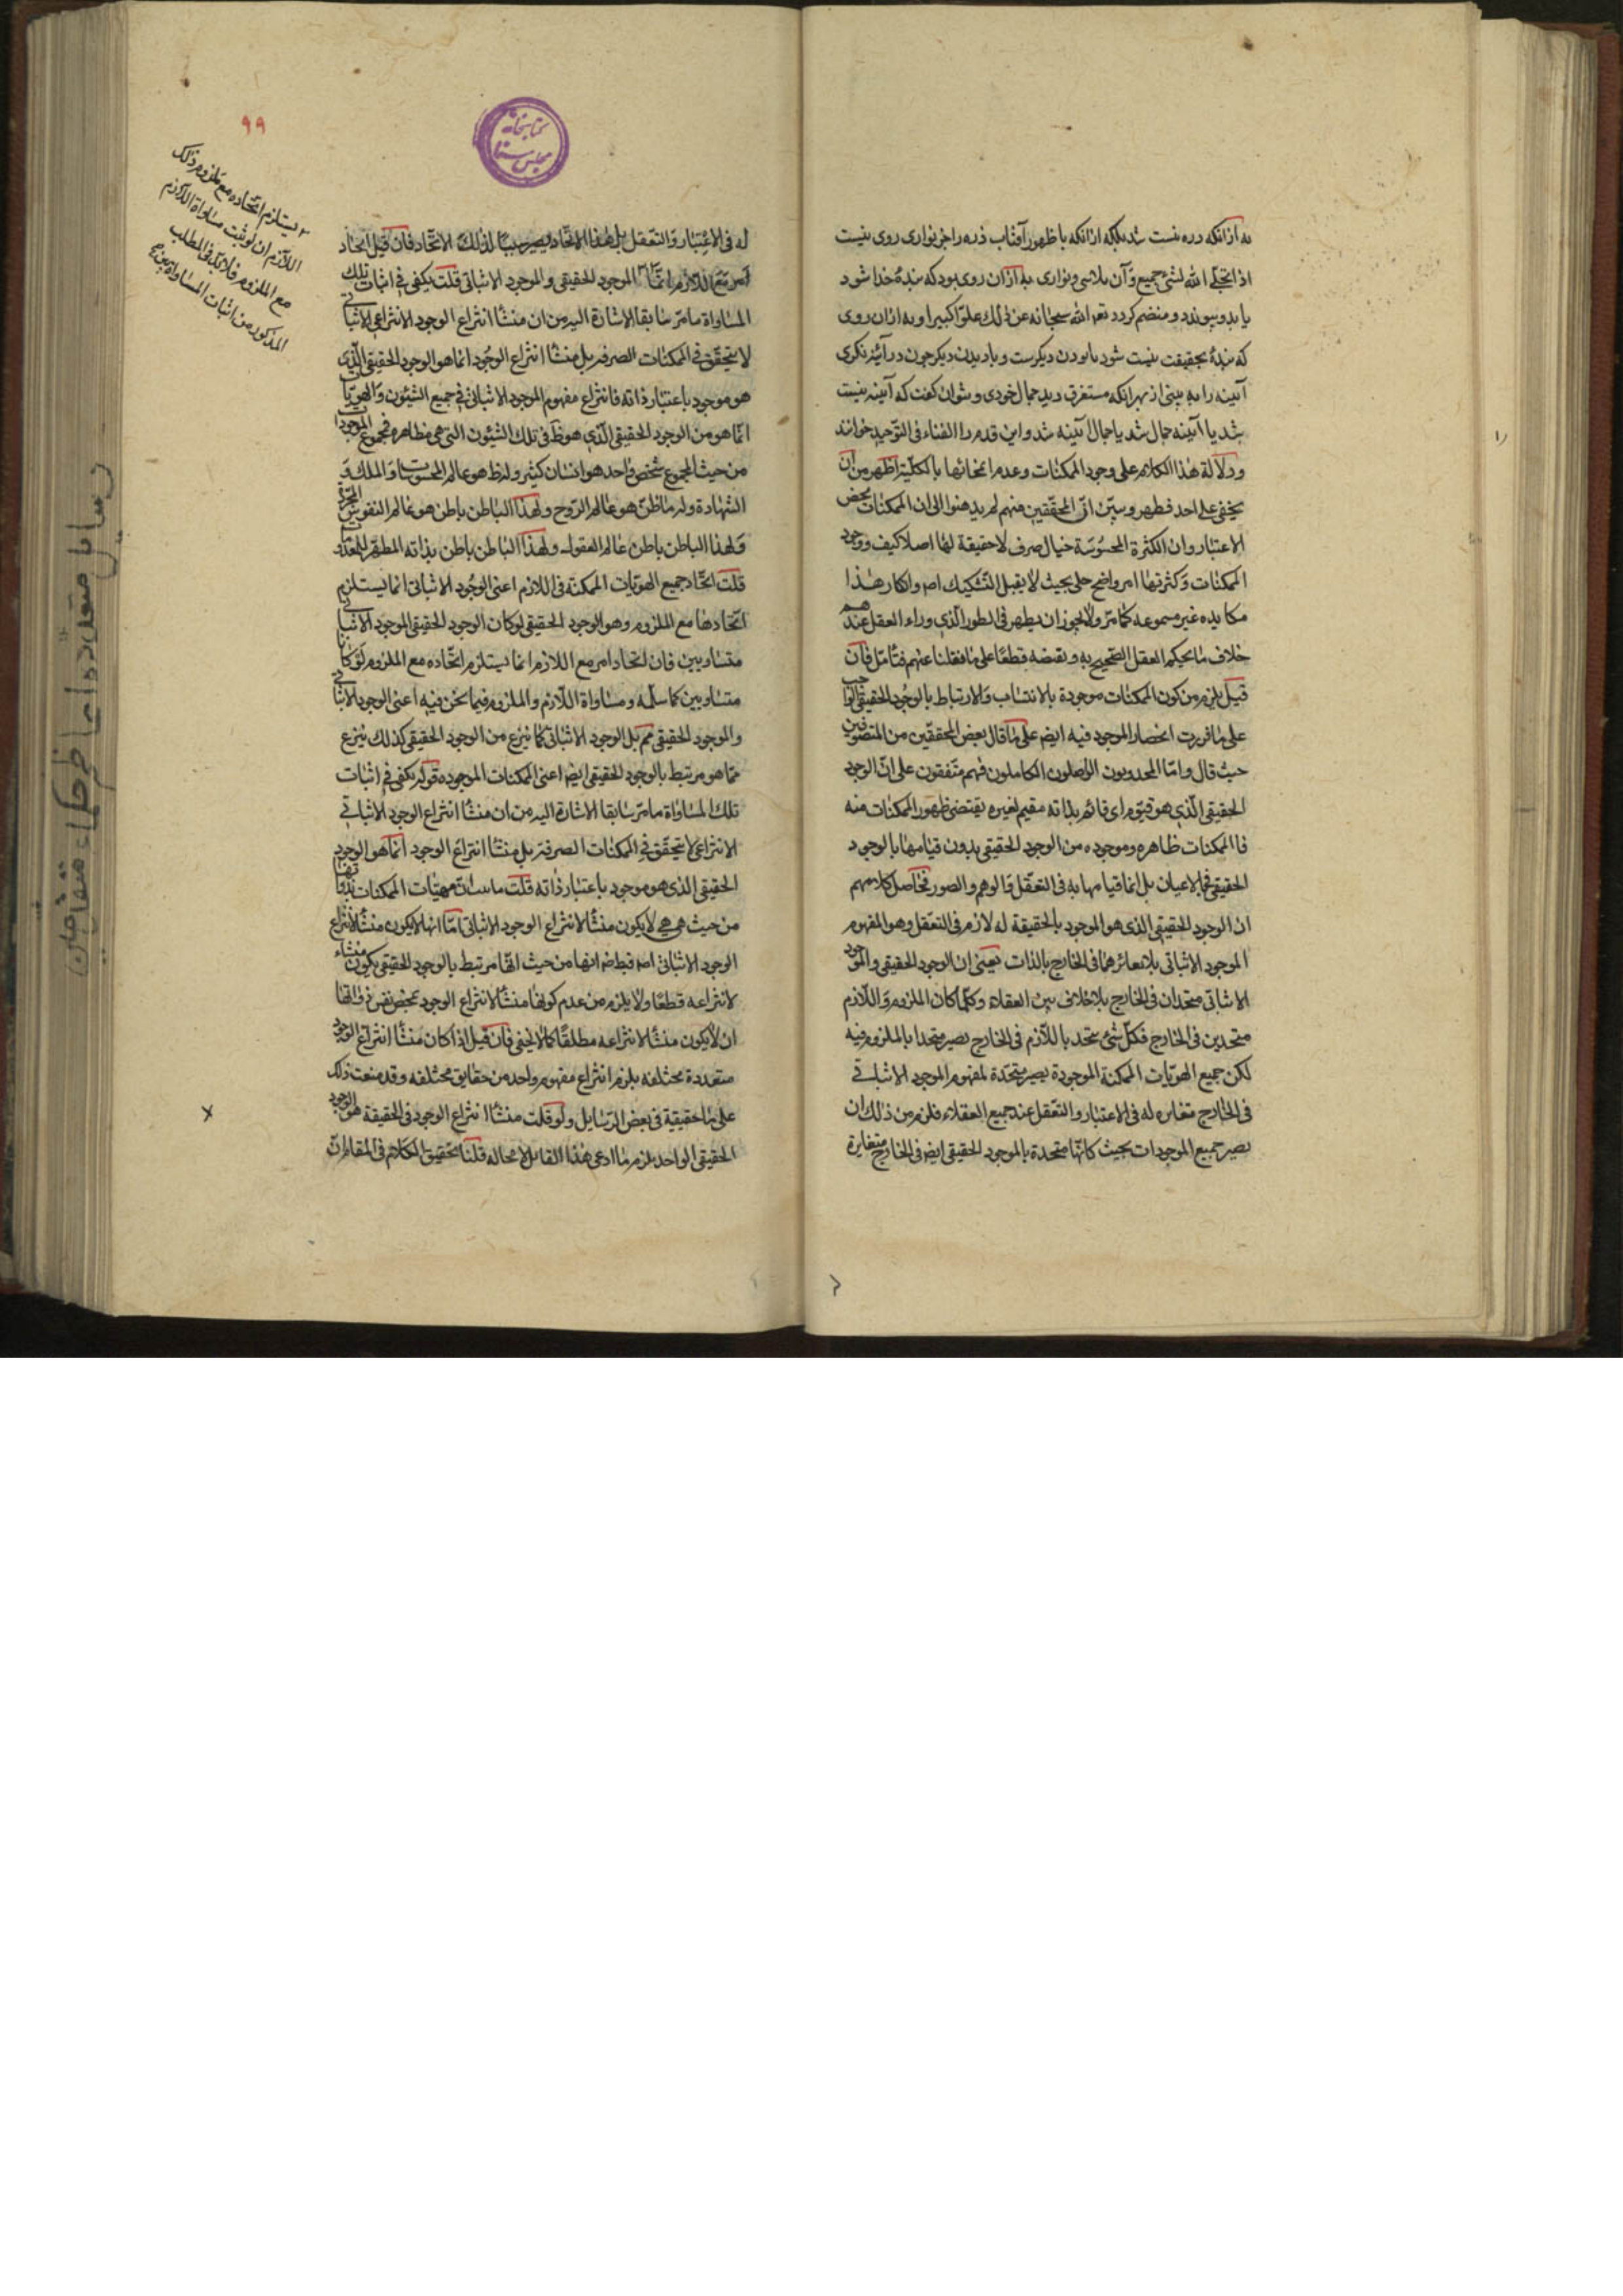 نه ازانکه ذره نیست شد بلکه ازانکه با ظهور آفتاب ذره را جز تواری روی نیست
اذا تجلی الله لشیء خضع وآن تلاشی و تواری نه ازان روی بود که بندهٔ خدا شود
یا بدو پیوندد و منضم کردد تعالی الله سبحانه عن ذلک علوّا کبیرا و نه ازان روی
که بندهٔ بحقیقت نیست شود نابودن دیکرست و نادیدن دیکر چون در آئینه نکری
آئینه را نه بینی از بهر آنکه مستغرق دید جمال خودی و نتوان کفت که آئینه نیست
شد یا آئینه جمال شد یا جمال آئینه شد و این قدم را الفناء فی التوحید خوانند
ودلالة هذا الکلام علی وجود الممکنات وعدم انمحائها بالکلیّة اظهر من ان
یخفی علی احد فظهر وتبیّن انّ المحقّقین منهم لم یذهبوا الی ان الممکنات محض
الاعتبار وان الکثرة المحسوسة خیال صرف لا حقیقة لها اصلا کیف ووجود
الممکنات وکثرتها امر واضح جلی بحیث لا یقبل التشکیک اصلا وانکار هذا
مکابره غیر مسموعه کما مرّ ولا یجوز ان یظهر فی الطور الّذی وراء العقل عندهم
خلاف ما یحکم العقل الصحیح به ونقیضه قطعًا علی ما نقلنا عنهم فتامّل فان
قیل یلزم من کون الممکنات موجودة بالانتساب والارتباط بالوجود الحقیقی الواجب
علی ما قررت انحصار الموجود فیه ایضا علی ما قال بعض المحققین من المتصوفین
حیث قال وامّا المجذوبون الواصلون الکاملون فهم متّفقون علی انّ الوجود
الحقیقی الّذی هو قیّوم ای قائم بذاته مقیم لغیره یقتضی ظهور الممکنات منه
فالممکنات ظاهره وموجوده من الوجود الحقیقی بدون قیامها بالوجود
الحقیقی فی الاعیان بل انما قیامها به فی التعقّل والوهم والصور فحاصل کلامهم
ان الوجود الحقیقی الذی هو الموجود بالحقیقة له لازم فی التعقل وهو المفهوم
الموجود الاثباتی بلا تغایرهما فی الخارج بالذات یعنی ان الوجود الحقیقی والموجود
الاثباتی متحدان فی الخارج بلا خلاف بین العقلاء وکلّما کان الملزوم واللّازم
متحدین فی الخارج فکلّ شیء یتحد باللّازم فی الخارج یصیر متحدا بالملزوم فیه
لکن جمیع الهویّات الممکنة الموجودة یصیر متحدة لمفهوم الموجود الاثباتی
فی الخارج متغایره له فی الاعتبار والتعقل عند جمیع العقلاء فلزم من ذلک ان
یصیر جمیع الموجودات بحیث کانّها متحدة بالموجود الحقیقی ایضا فی الخارج متغایرة
۹۹
یستلزم اتحاده مع ملزوم ذلک
اللازم ان لو ثبت مساواة اللازم
مع الملزوم فلا بد فی المطلب
المذکور من اثبات المساواة بین
کتابخانه
مجلس سنا
له فی الاعتبار والتعقل بل هذا الاتحاد یصیر سببًا لذلک الاتّحاد فان قیل اتحاد
امر مع اللازم انّما الموجود الحقیقی والموجود الاثباتی قلت یکفی فی اثبات تلک
المساواة ما مرّ سابقا الاشارة الیه من ان منشأ انتزاع الوجود الانتزاعی الاثباتی
لا یتحقّق فی الممکنات الصرفه بل منشأ انتزاع الوجود انما هو الوجود الحقیقی الّذی
هو موجود باعتبار ذاته فانتزاع مفهوم الموجود الاثباتی فی جمیع الشئون والهویّات
انّما هو من الوجود الحقیقی الّذی هو ظاهر فی تلک الشئون التی هی مظاهره فمجموع الموجودات
من حیث المجموع شخص واحد هو انسان کبیر وله ظاهر هو عالم المحسوسات والملک و
الشهادة وله باطن هو عالم الرّوح ولهذا الباطن باطن هو عالم النفوس المجرّدة
ولهذا الباطن باطن عالم العقول ولهذا الباطن باطن بذاته المطهّر
قلت اتحاد جمیع الهویات الممکنة فی اللازم اعنی الوجود الاثباتی انما یستلزم
اتّحادها مع الملزوم وهو الوجود الحقیقی لو کان الوجود الحقیقی الموجود الاثباتی
متساویین فان اتحاد امر مع اللازم انما یستلزم اتحاده مع الملزوم لو کانا
متساویین کما سلّمه ومساواة اللازم والملزوم فیما نحن فیه اعنی الوجود الاثباتی
والموجود الحقیقی مم بل الوجود الاثباتی کما ینتزع من الوجود الحقیقی کذلک ینتزع
ممّا هو مرتبط بالوجود الحقیقی ایضا اعنی الممکنات الموجوده قوله یکفی فی اثبات
تلک المساواة ما مرّ سابقا الاشارة الیه من ان منشأ انتزاع الوجود الاثباتی
الانتزاعی لا یتحقّق فی الممکنات الصرفة بل منشأ انتزاع الوجود انما هو الوجود
الحقیقی الذی هو موجود باعتبار ذاته قلت ما سبق انّ مهیّات الممکنات بذواتها
من حیث هی هی لا یکون منشأ لانتزاع الوجود الاثباتی امّا انها لا یکون منشأ لانتزاع
الوجود الاثباتی اصلا فباطل فانها من حیث انّها مرتبط بالوجود الحقیقی یکون منشاء
لانتزاعه قطعًا ولا یلزم من عدم کونها منشأ لانتزاع الوجود بمحض نفس ذواتها
ان لا یکون منشأ لانتزاعه مطلقًا کما لا یخفی فان قیل اذا کان منشأ انتزاع الوجود
متعددة مختلفه یلزم انتزاع مفهوم واحد من حقایق مختلفه وقد منعت ذلک
علی ما حقیقیة فی بعض الرّسایل ولو قلت منشأ انتزاع الوجود فی الحقیقة هو الوجود
الحقیقی الواحد یلزم ما ادعی هذا القائل لا محاله قلنا تحقیق الکلام فی المقام انّ
رسایل متعدده از حکماء متفاجین